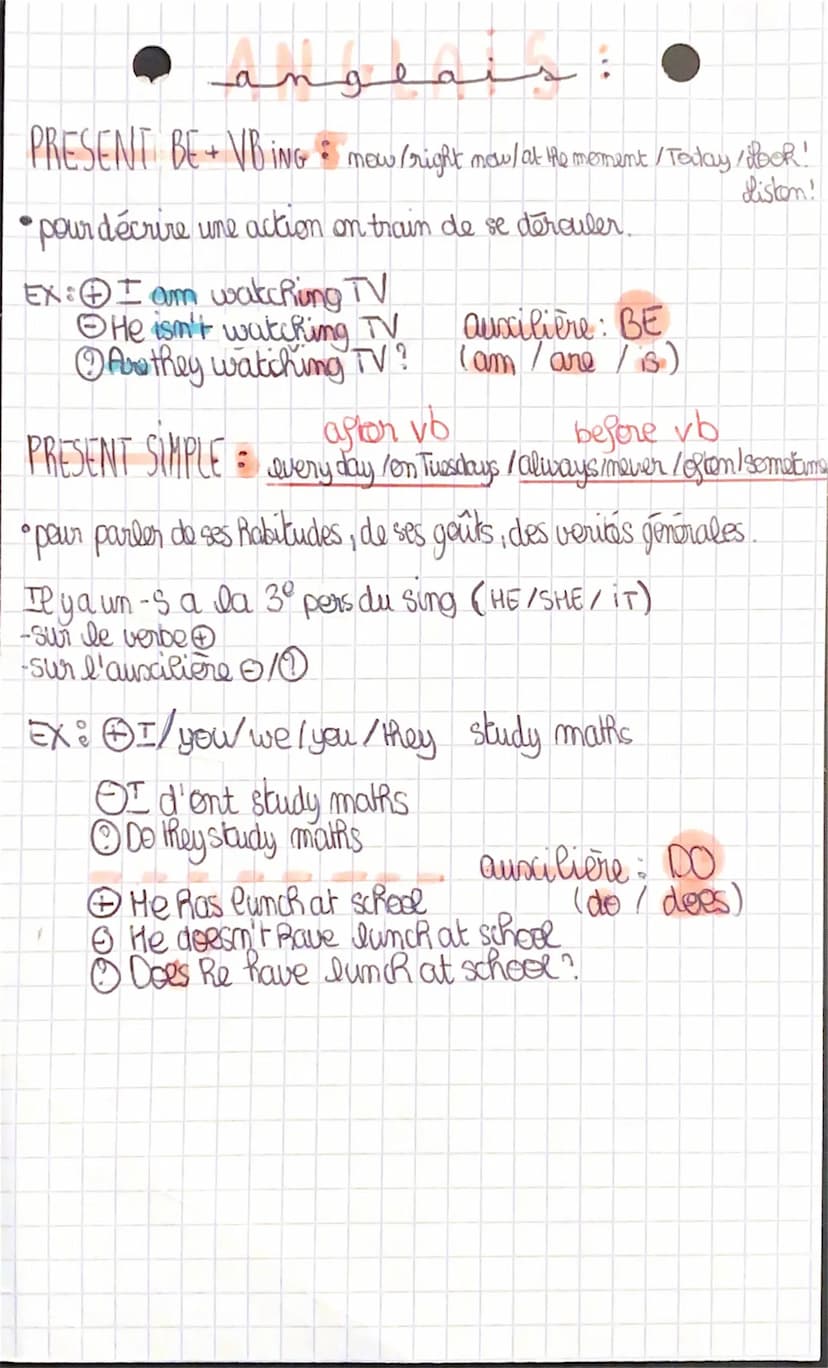 ANGLAIS :
anglais
PRESENT BE + VB ING : now / right now / at the moment / Today / look !
listen !
• pour décrire une action en train de se dérouler.
EX : ⊕ I am watching TV
⊖ He isn't watching TV
auxilière : BE
? Are they watching TV ?
(am / are / is)
after vb
before vb
PRESENT SIMPLE : every day / on Tuesdays / always / never / often / sometime
• pour parler de ses habitudes, de ses goûts, des verités générales.
Il y a un -s a la 3e pers du sing (HE / SHE / iT)
- sur le verbe ⊕
- sur l'auxilière ⊖ / ?
EX : ⊕ I / you / we / you / they study maths
⊖ I d'ont study maths
? Do they study maths
auxilière : DO
(do / does)
⊕ He has lunch at school
⊖ He doesn't have lunch at school
? Does he have lunch at school ?